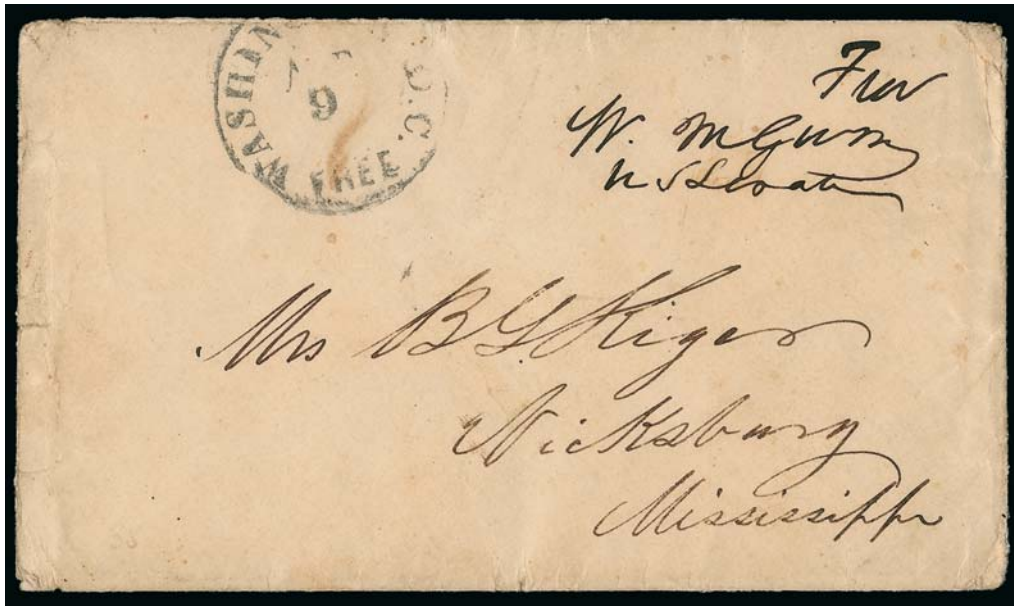 WASHIN D.C.
9
FREE
Free
W. M Gwin
U S Senator
Mrs B G Kiger
Vicksburg
Mississippi